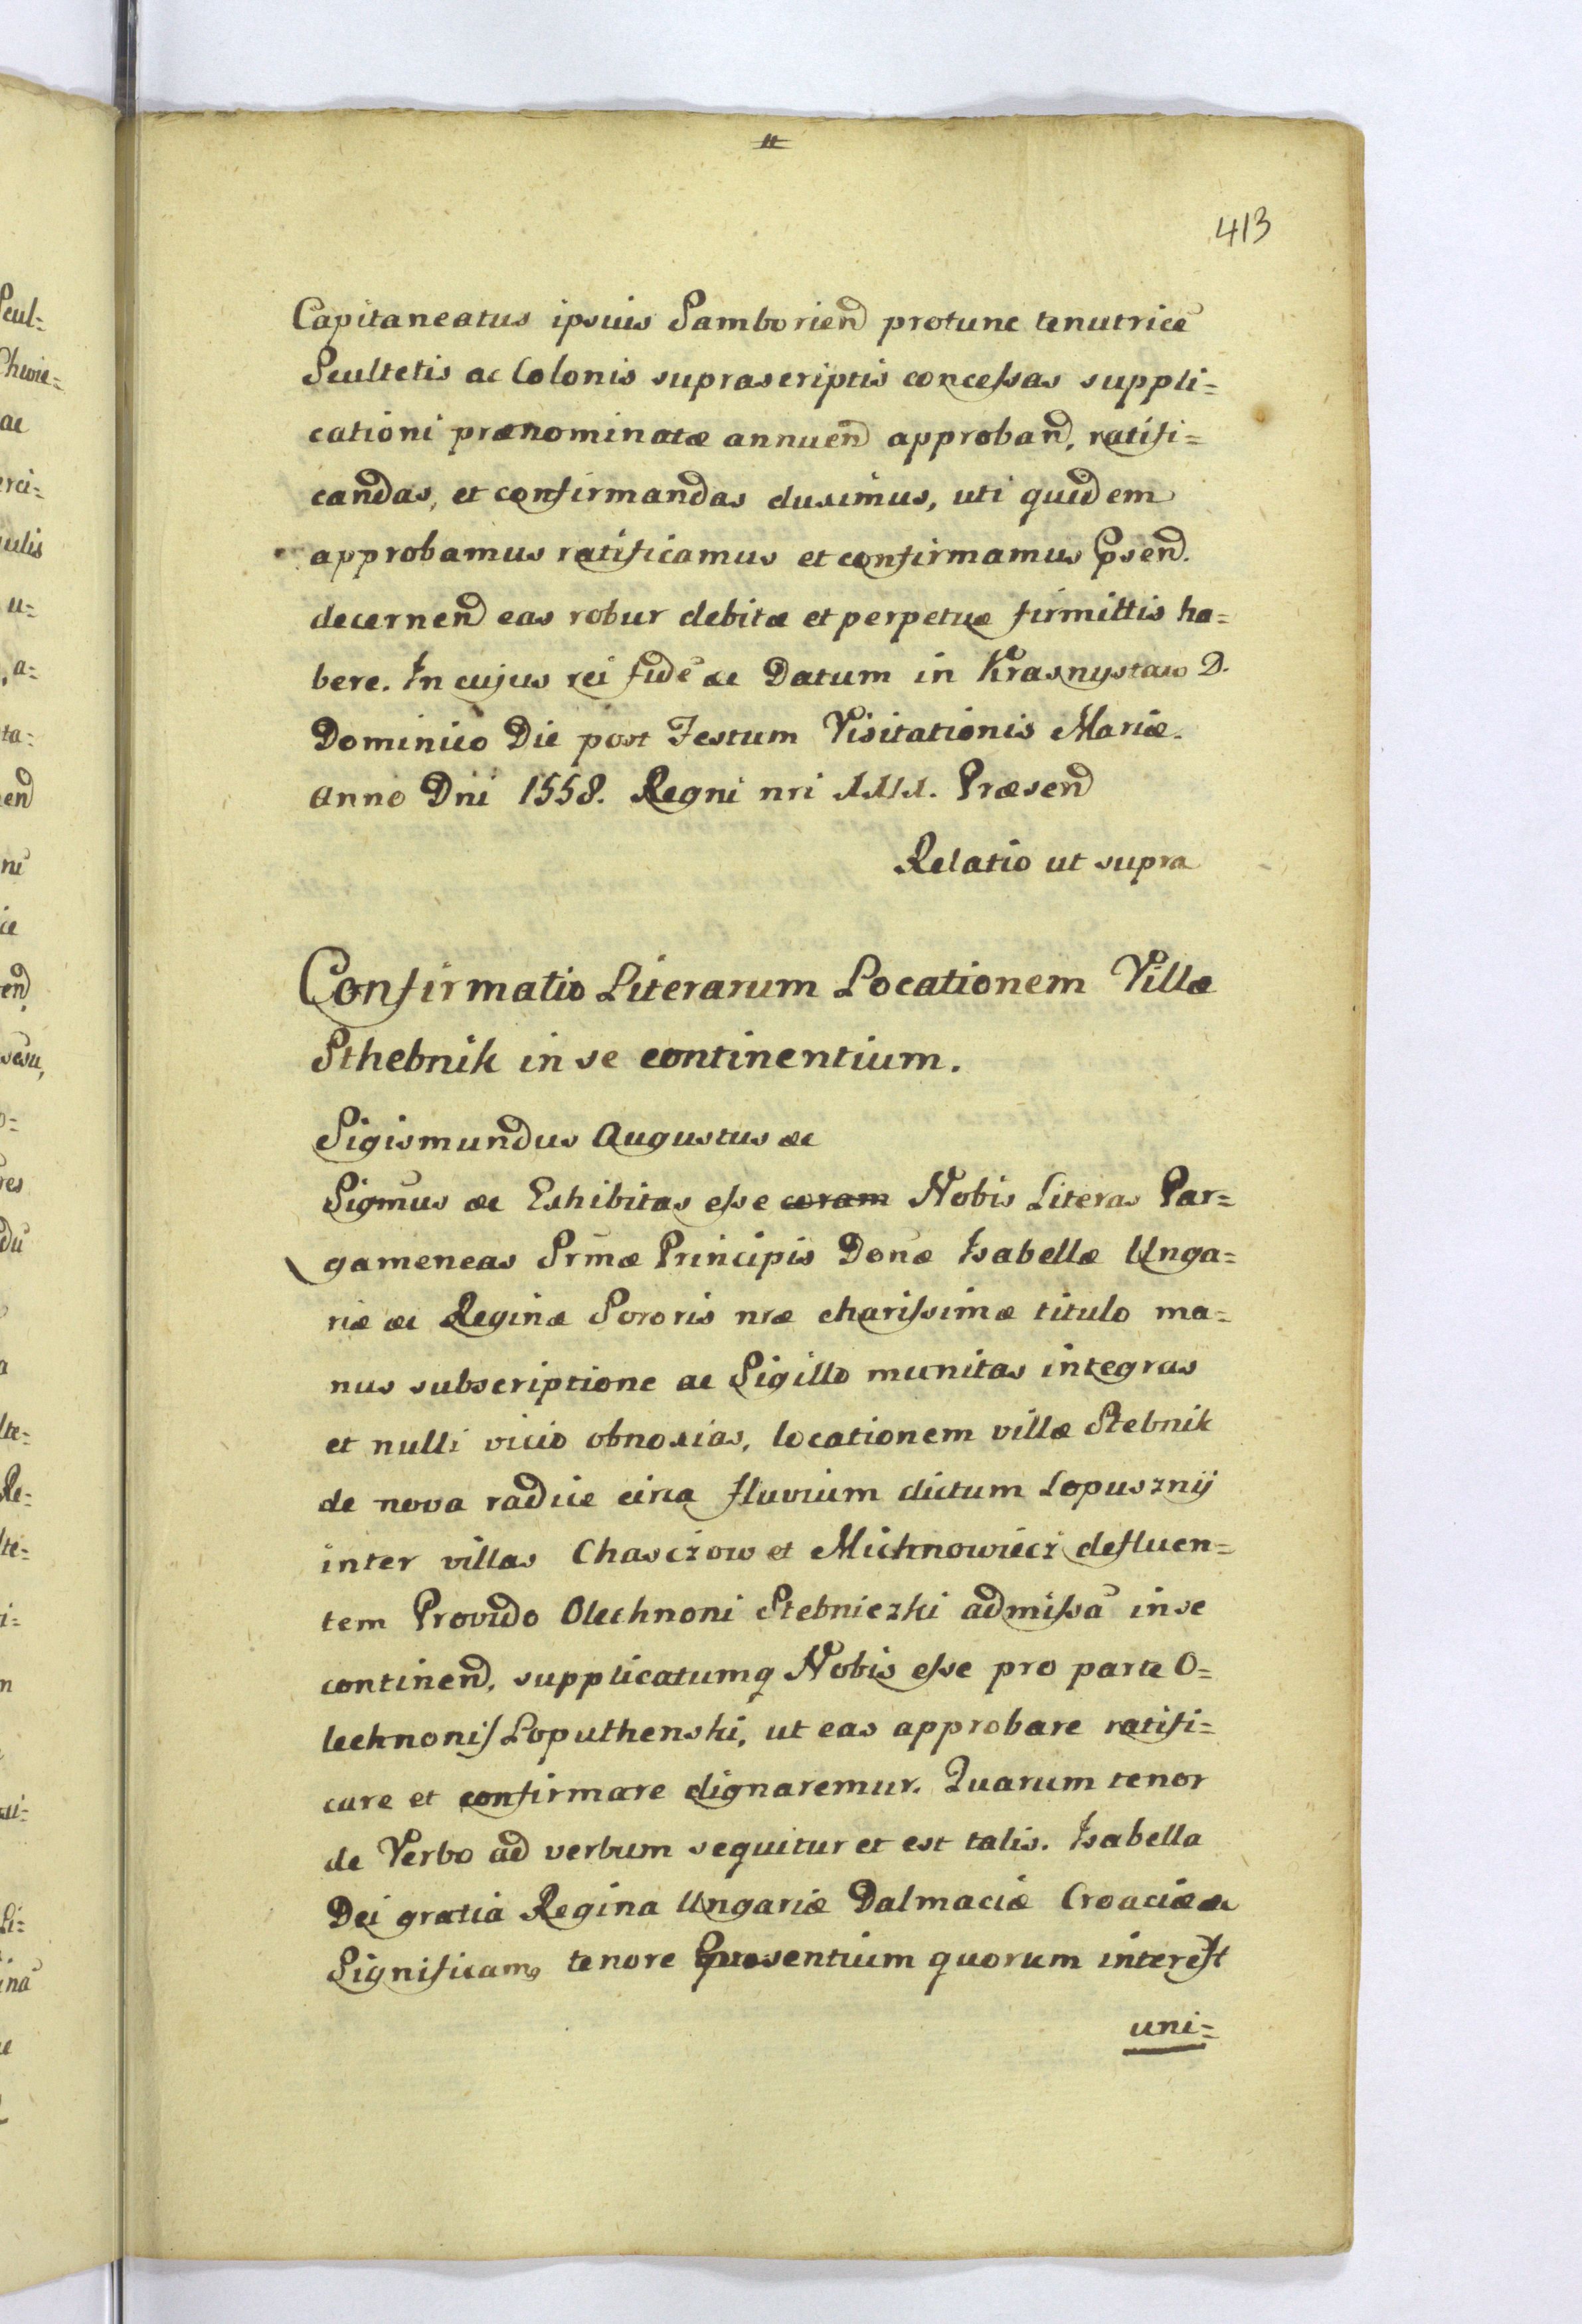 413
Capitaneatus ipsuis Samborien protunc tenutricē
Scultetis ac Colonis suprascriptis concessas suppli=
cationi prænominatæ annuen approban, ratifi=
candas, et confirmandas duximus, uti quidem
approbamus ratificamus et confirmamus Psen.
decernen eas robur debitæ et perpetuæ firmittis ha=
bere. In cujus rei fidē &c Datum in Krasnystaw D.
Dominico Die post Festum Visitationis Mariæ.
Anno Dni 1558. Regni nri Præsend
Relatio ut supra
Confirmatio Literarum Locationem Villæ
Sthebnik in se continentium.
Sigismundus Augustus &c
Sigmus &c Exhibitas esse coram Nobis Literas Par=
gameneas Srmæ Principis Donæ Isabellæ Unga=
riæ &c Reginæ Sororis nræ charissimæ titulo ma=
nus subscriptione ac Sigillo munitas integras
et nulli vicio obnoxias, locationem villæ Stebnik
de nova radice circa fluvium dictum Lopusznÿ
inter villas Chasczow et Michnowiecz defluen=
tem Provido Olechnoni Stebniczki admissā in se
continend, supplicatumq Nobis esse pro parte O=
lechnonis Loputhenski, ut eas approbare ratifi=
care et confirmare dignaremur. Quarum tenor
de Verbo ad verbum sequitur et est talis. Isabella
Dei gratia Regina Ungariæ Dalmaciæ Croaciæ &c
Significamꝯ tenore Præsentium quorum interest
uni=